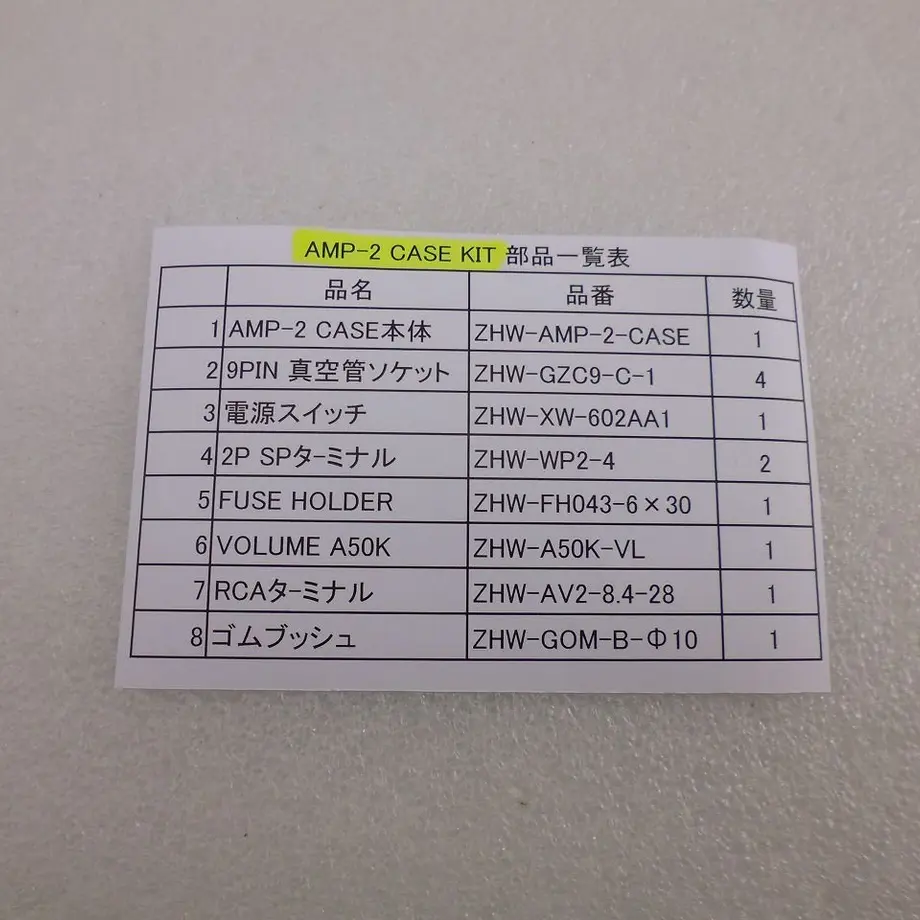 AMP-2 CASE KIT 部品一覧表
品名 品番 数量
1 AMP-2 CASE本体 ZHW-AMP-2-CASE 1
2 9PIN 真空管ソケット ZHW-GZC9-C-1 4
3 電源スイッチ ZHW-XW-602AA1 1
4 2P SPターミナル ZHW-WP2-4 2
5 FUSE HOLDER ZHW-FH043-6×30 1
6 VOLUME A50K ZHW-A50K-VL 1
7 RCAターミナル ZHW-AV2-8.4-28 1
8 ゴムブッシュ ZHW-GOM-B-Φ10 1